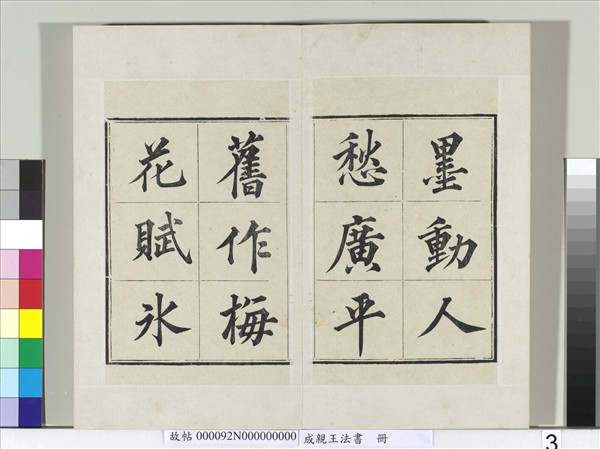 墨動人
愁廣平
舊作梅
花賦氷
故帖 000092N000000000 成親王法書 冊
3